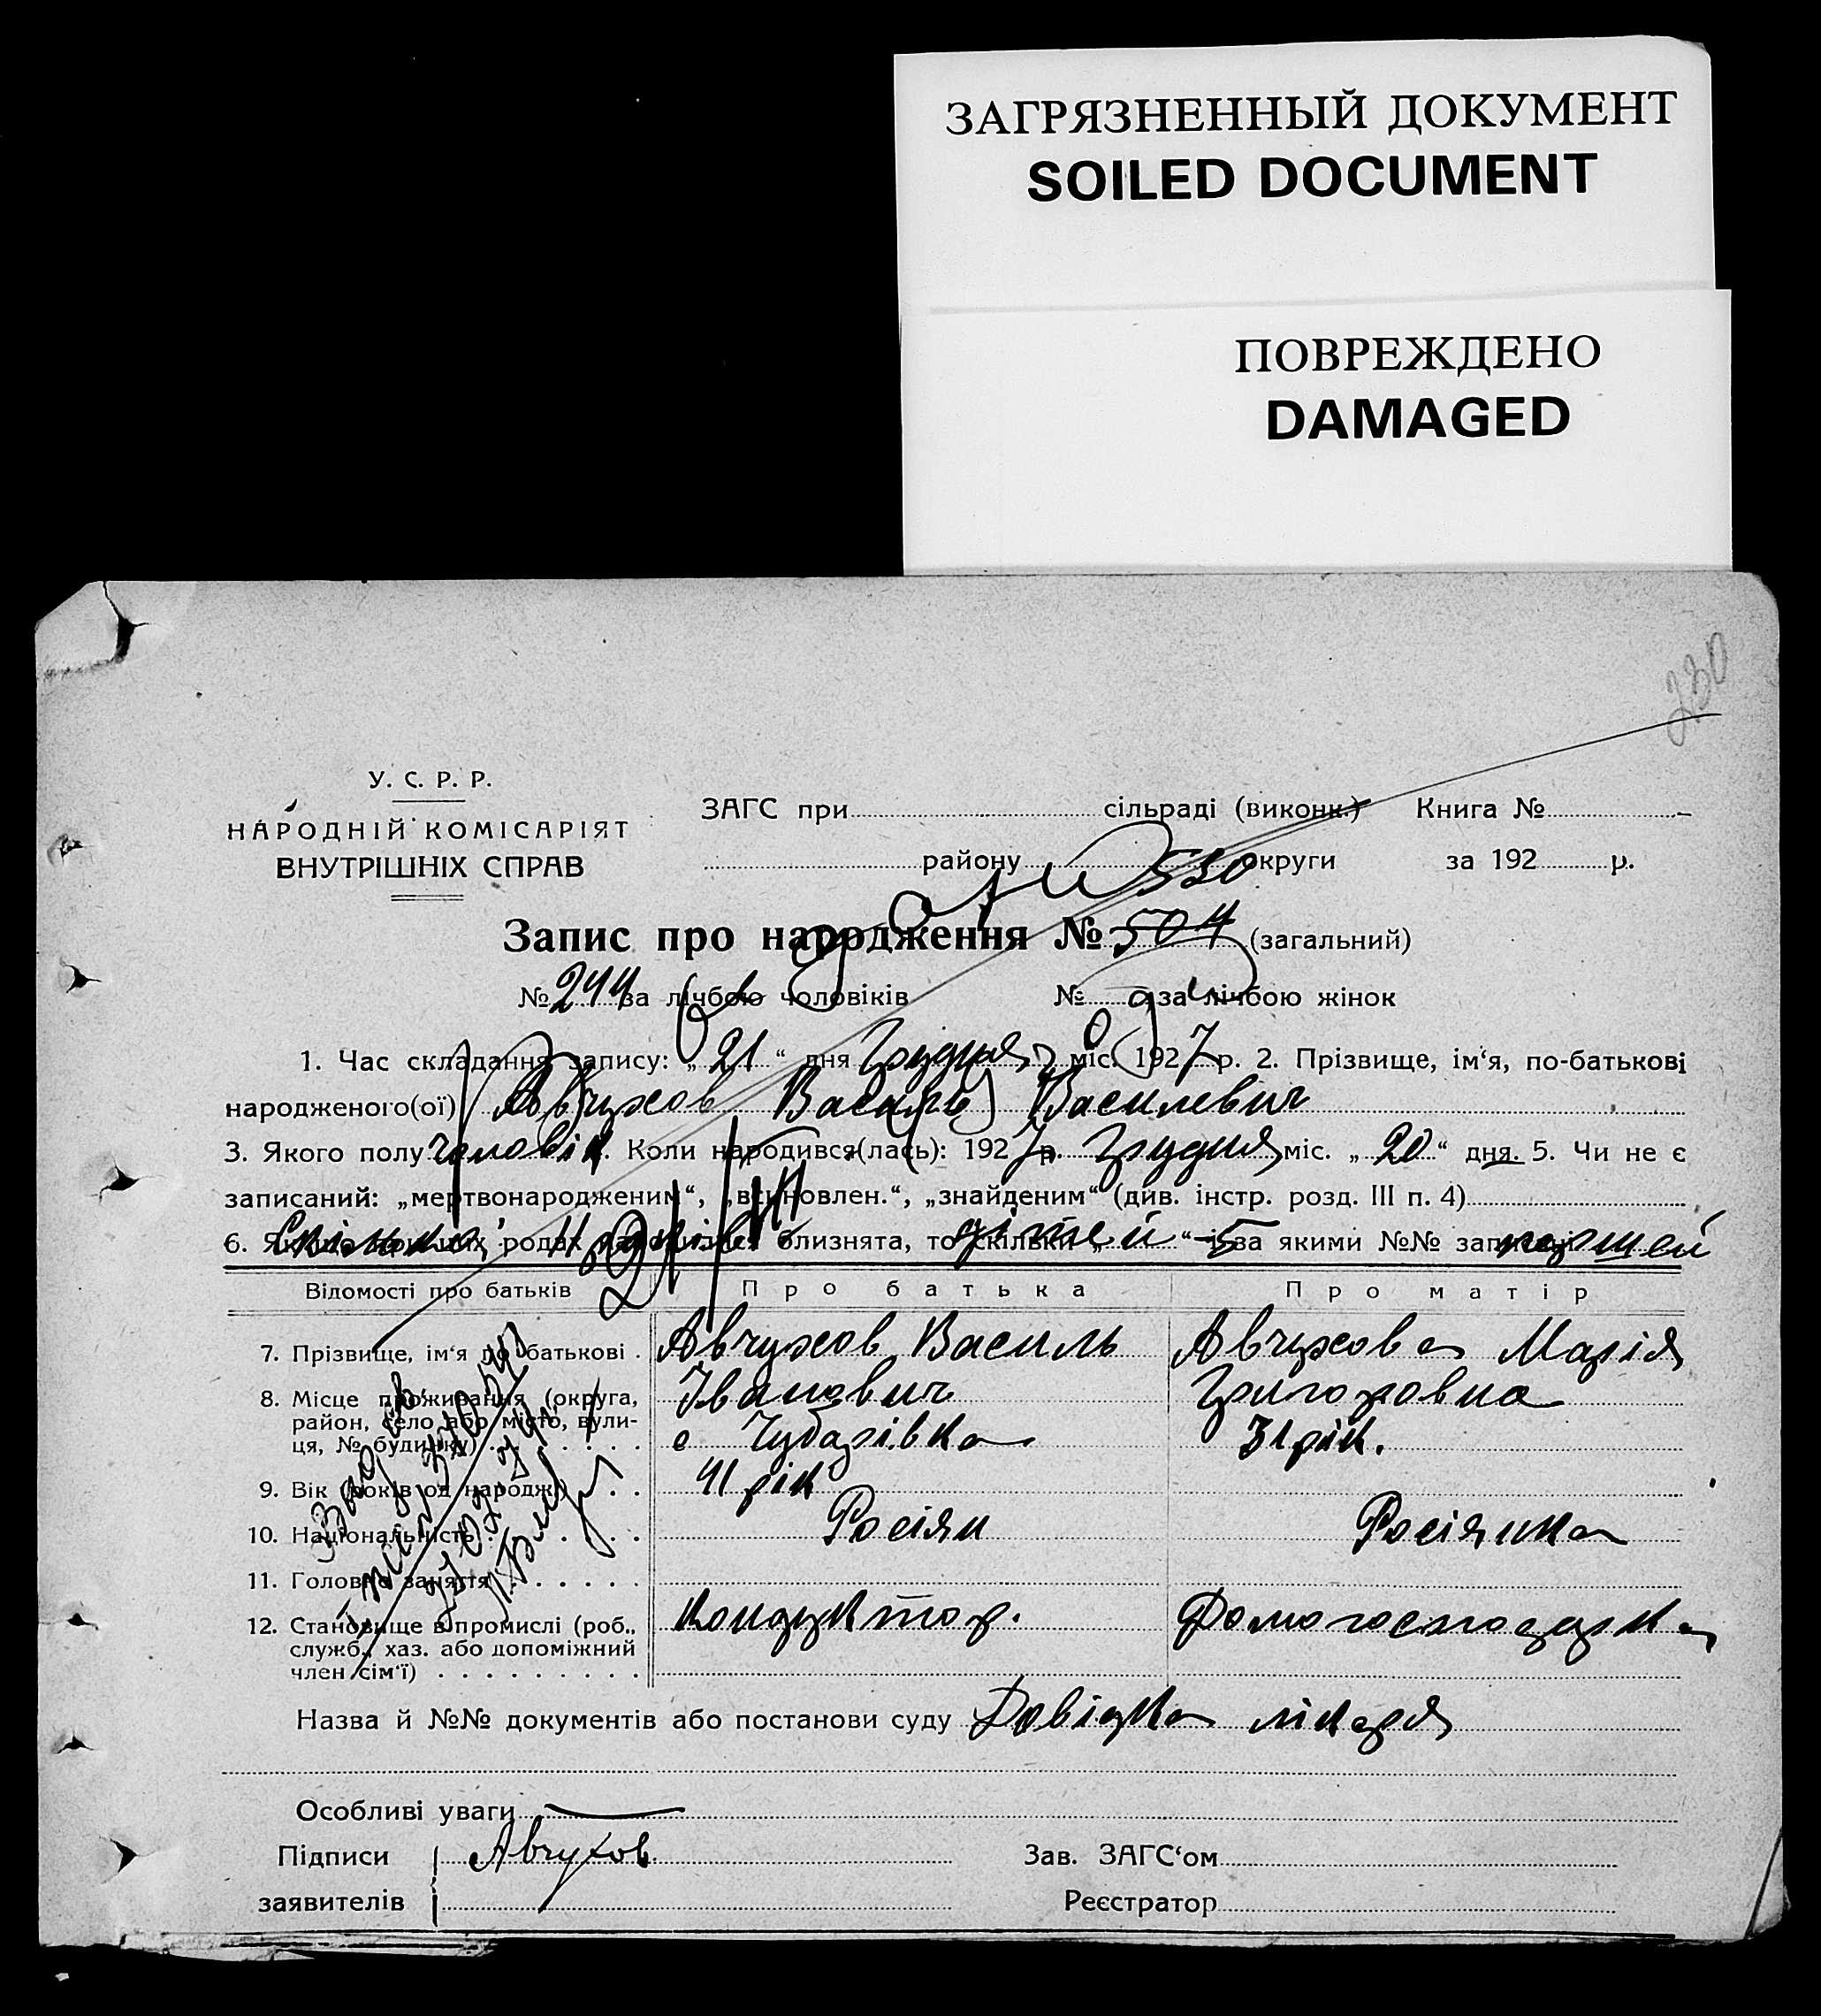 ЗАГРЯЗНЕННЫЙ ДОКУМЕНТ
SOILED DOCUMENT
ПОВРЕЖДЕНО
DAMAGED
230
У. С. Р. Р.
НАРОДНІЙ КОМІСАРІЯТ
ВНУТРІШНІХ СПРАВ
ЗАГС при сільраді (виконк.) Книга №
району округи за 192 р.
530
Запис про народження № 504 (загальний)
№ 244 за лічбою чоловіків № за лічбою жінок
1. Час складання запису: „ 21 “ дня Грудня міс. 1927 р. 2. Прізвище, ім‘я, по-батькові
народженого(ої) Авчухов Василь Василевич
3. Якого полу чоловік. Коли народився(лась): 1927 р. Грудня міс. „ 20 “ дня. 5. Чи не є
записаний: „мертвонародженим“, „всиновлен.“, „знайденим“ (див. інстр. розд. III п. 4)
6. Якщо при цих родах народилися близнята, то скільки „ “ і за якими №№ записані
дітей 5
Відомості про батьків Про батька Про матір
7. Прізвище, ім‘я по-батькові . Авчухов Василь Авчухова Марія
8. Місце проживання (округа, Іванович Григоровна
район, село або місто, вули-
ця, № будинку) с Чубарівка 31 рік.
9. Вік (років од народж.) . . 41 рік
10. Національність Росіян Росіянка
11. Головне заняття
12. Становище в промислі (роб., Кондуктор. Домогосподарка
служб., хаз. або допоміжний
член сім‘ї)
Назва й №№ документів або постанови суду Довідка лікаря
Особливі уваги
Підписи Авчухов Зав. ЗАГС‘ом
заявителів Реєстратор